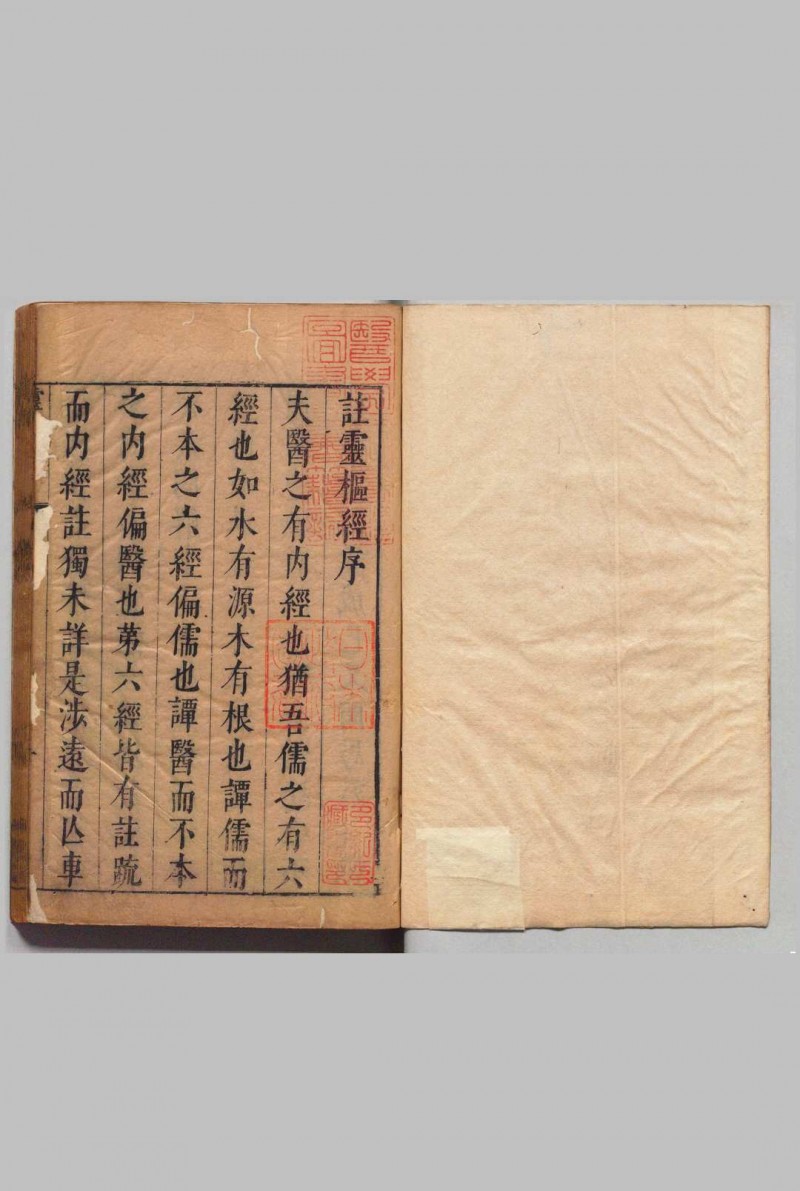 註靈樞經序
夫醫之有内經也猶吾儒之有六
經也如水有源木有根也譚儒而
不本之六經偏儒也譚醫而不本
之内經偏醫也苐六經皆有註疏
而内經註獨未詳是涉遠而亾車